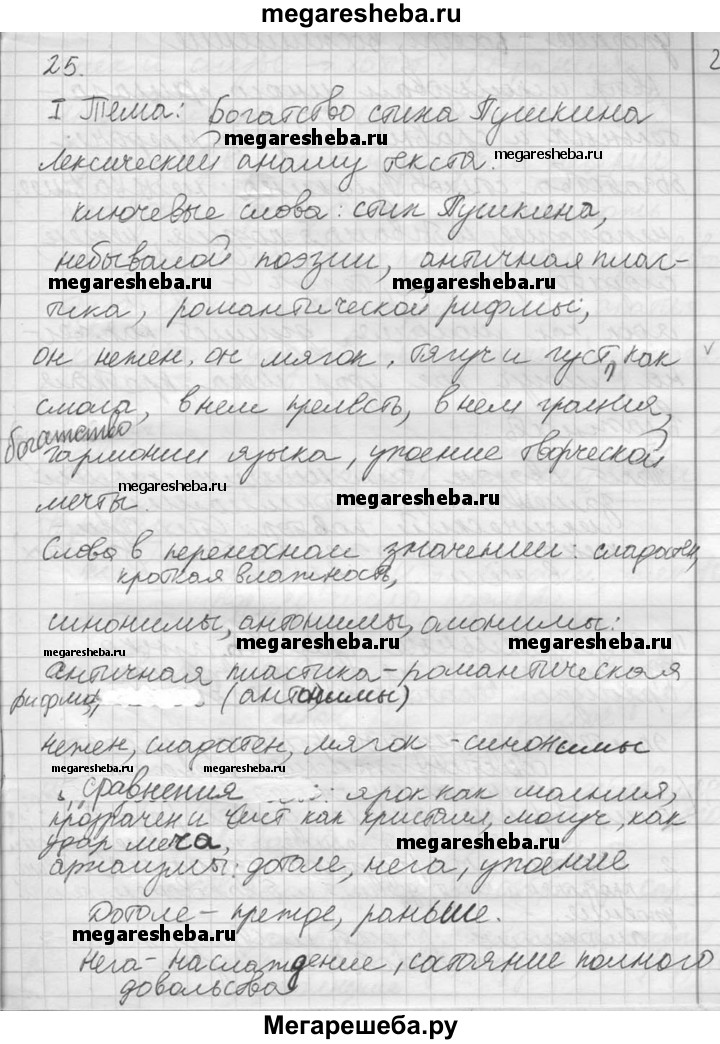 megaresheba.ru
25.
2
I Тема: Богатство стиха Пушкина
megaresheba.ru
Лексический анализ текста.
megaresheba.ru
ключевые слова: стих Пушкина,
небывалой поэзии, античная плас-
megaresheba.ru
megaresheba.ru
тика, романтической рифмы,
он нежен, он мягок, тягуч и густ, как
смола, в нем прелесть, в нем грация,
богатство
гармонии языка, упоение творческой
мечты.
megaresheba.ru
megaresheba.ru
Слова в переносном значении: сладостен,
кроткая влажность,
синонимы, антонимы, омонимы:
megaresheba.ru
megaresheba.ru
megaresheba.ru
античная пластика – романтическая
рифма, (антонимы)
нежен, сладостен, мягок – синонимы
megaresheba.ru
megaresheba.ru
сравнения : ярок как молния,
прозрачен и чист как кристалл, могуч, как
удар меча,
megaresheba.ru
архаизмы: дотоле, нега, упоение
Дотоле – прежде, раньше.
megaresheba.ru
Нега – наслаждение, состояние полного
довольства
Мегарешеба.ру